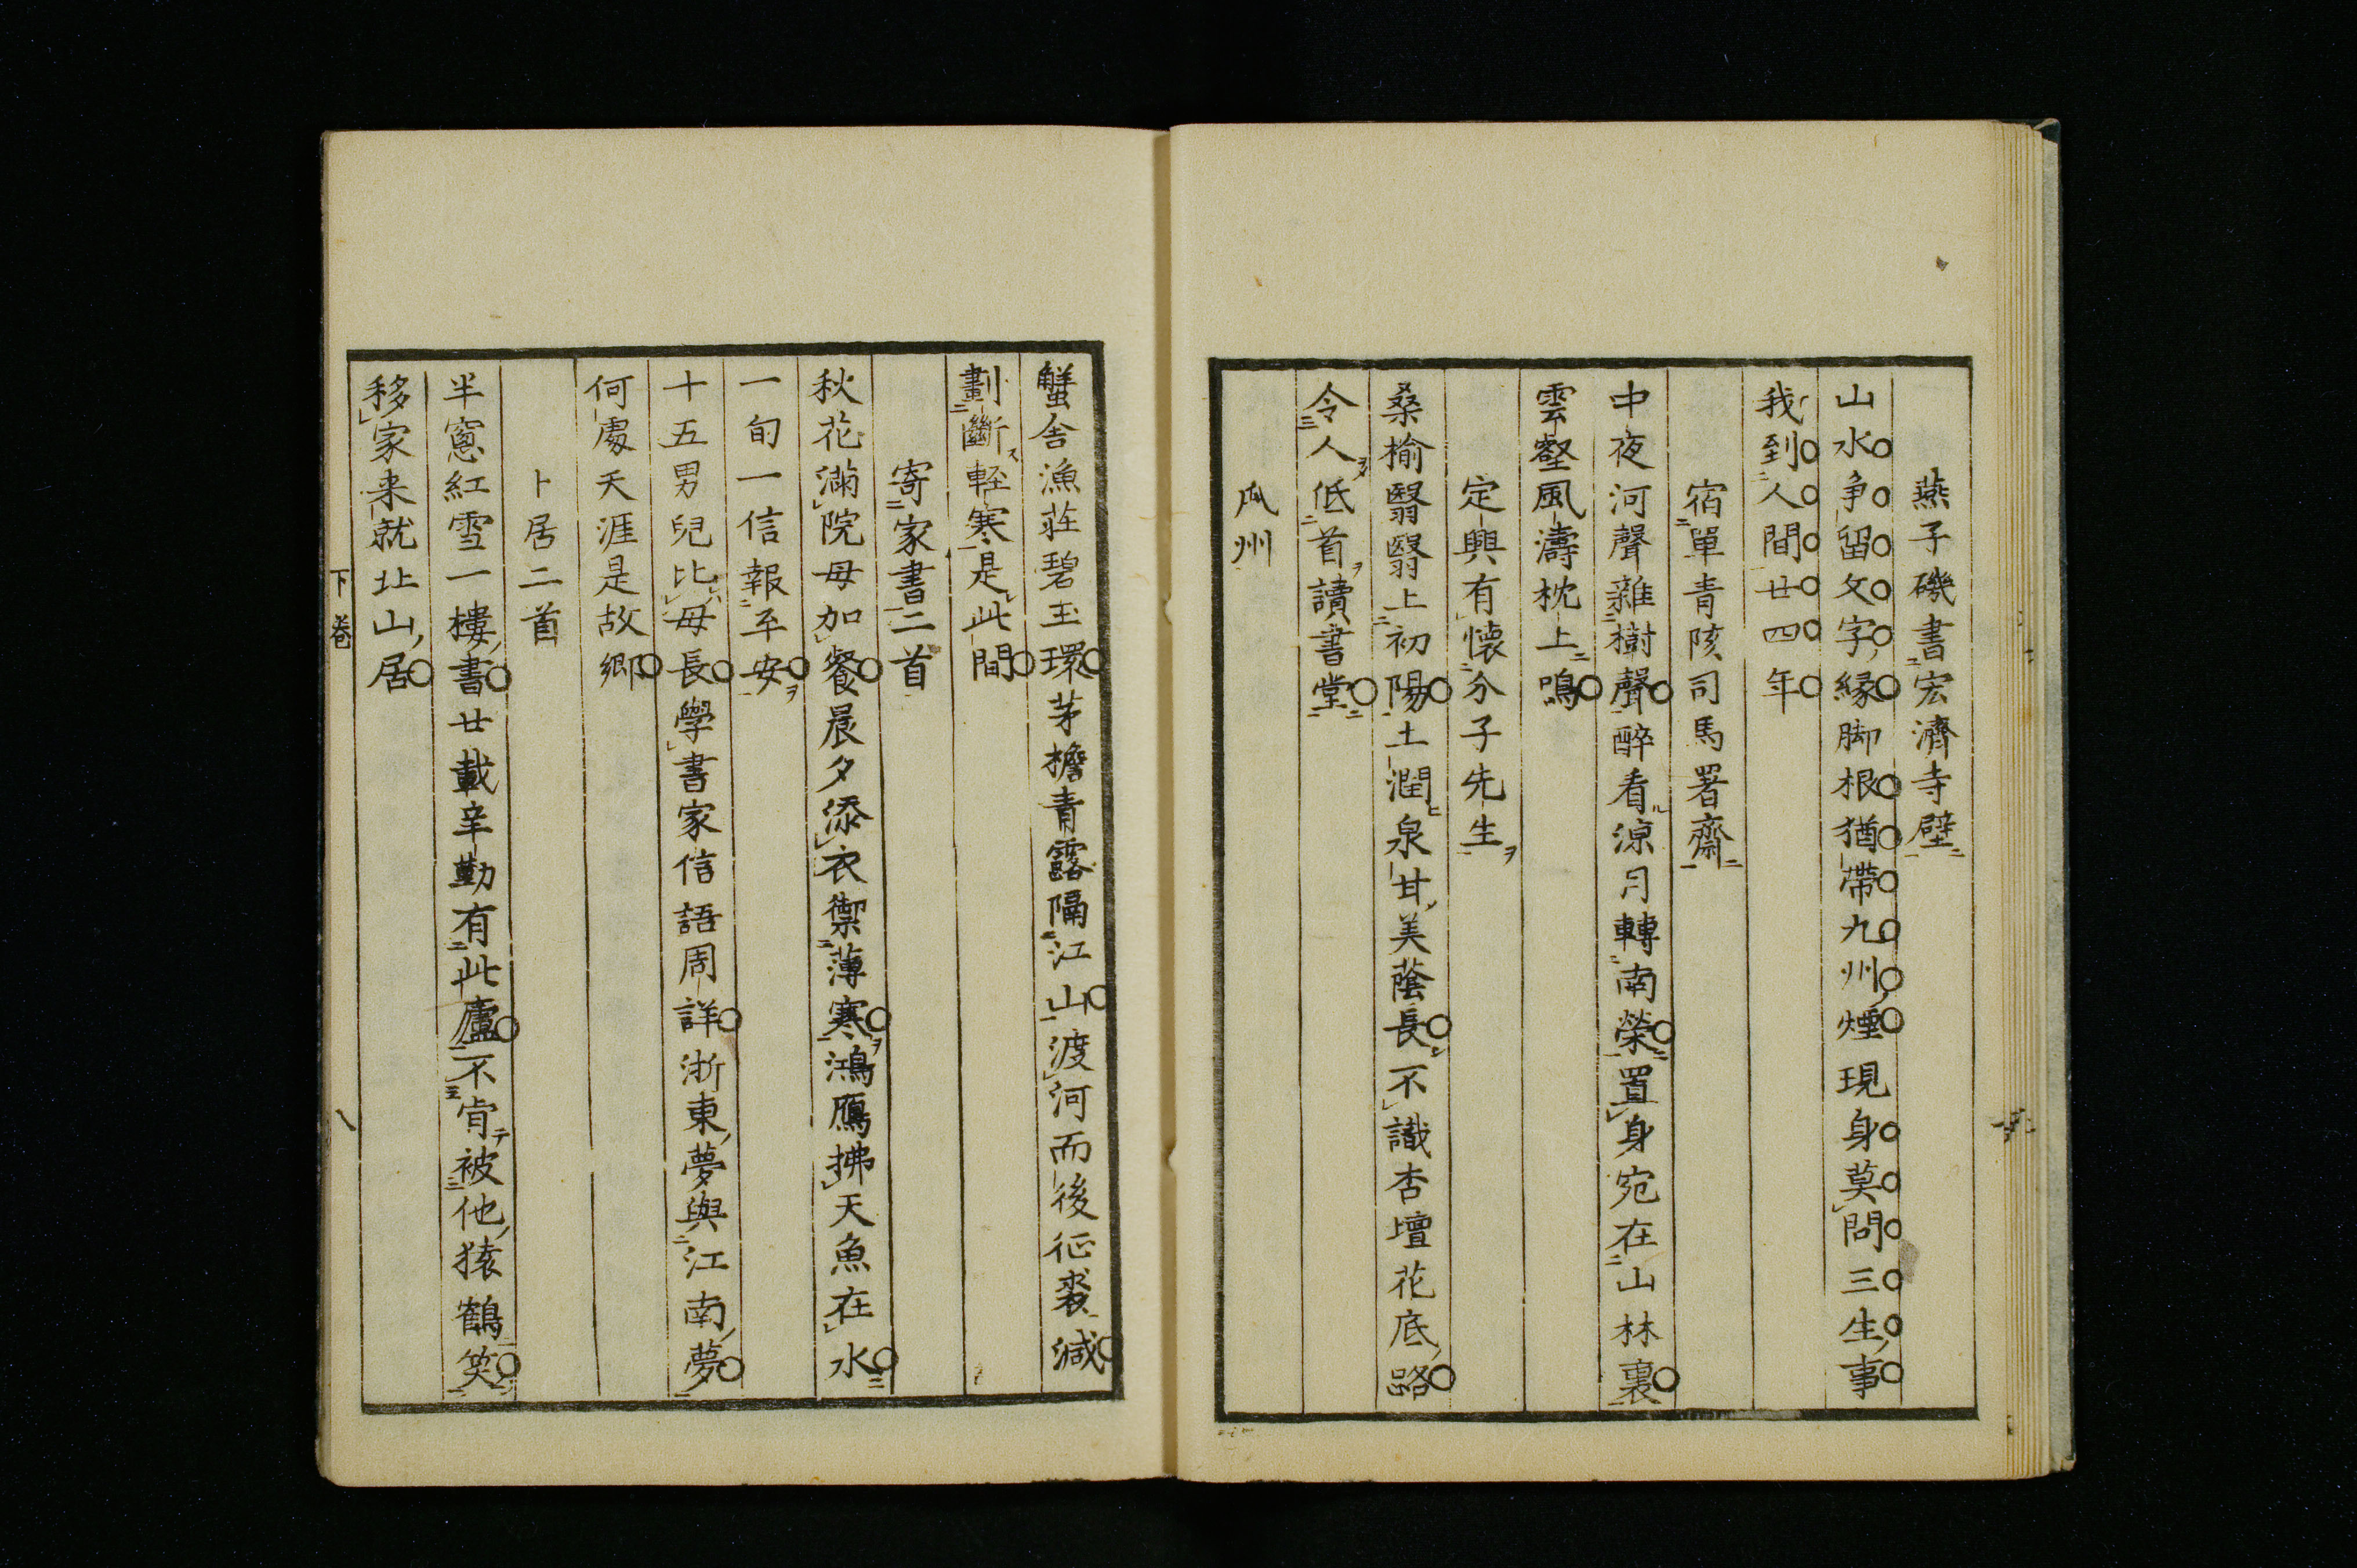 燕子磯書宏濟寺壁
山水争留文字縁脚根猶帶九州煙現身莫問三生事
我到人間廿四年
宿單青陔司馬署齋
中夜河聲雜樹聲醉看涼月轉南榮置身宛在山林裏
雲壑風濤枕上鳴
定興有懐分子先生
桑榆翳翳上初陽土潤泉甘美蔭長不識杏壇花底路
令人低首讀書堂
瓜州
蟹舎漁莊碧玉環茅檐青露隔江山渡河而後征裘減
劃斷輕寒是此間
寄家書二首
秋花滿院母加餐晨夕添衣禦薄寒鴻鴈拂天魚在水
一旬一信報平安
十五男兒比母長學書家信語周詳浙東夢與江南夢
何處天涯是故郷
卜居二首
半窻紅雪一樓書廿載辛勤有此廬不肯被他猿鶴笑
移家来就北山居
下卷
八